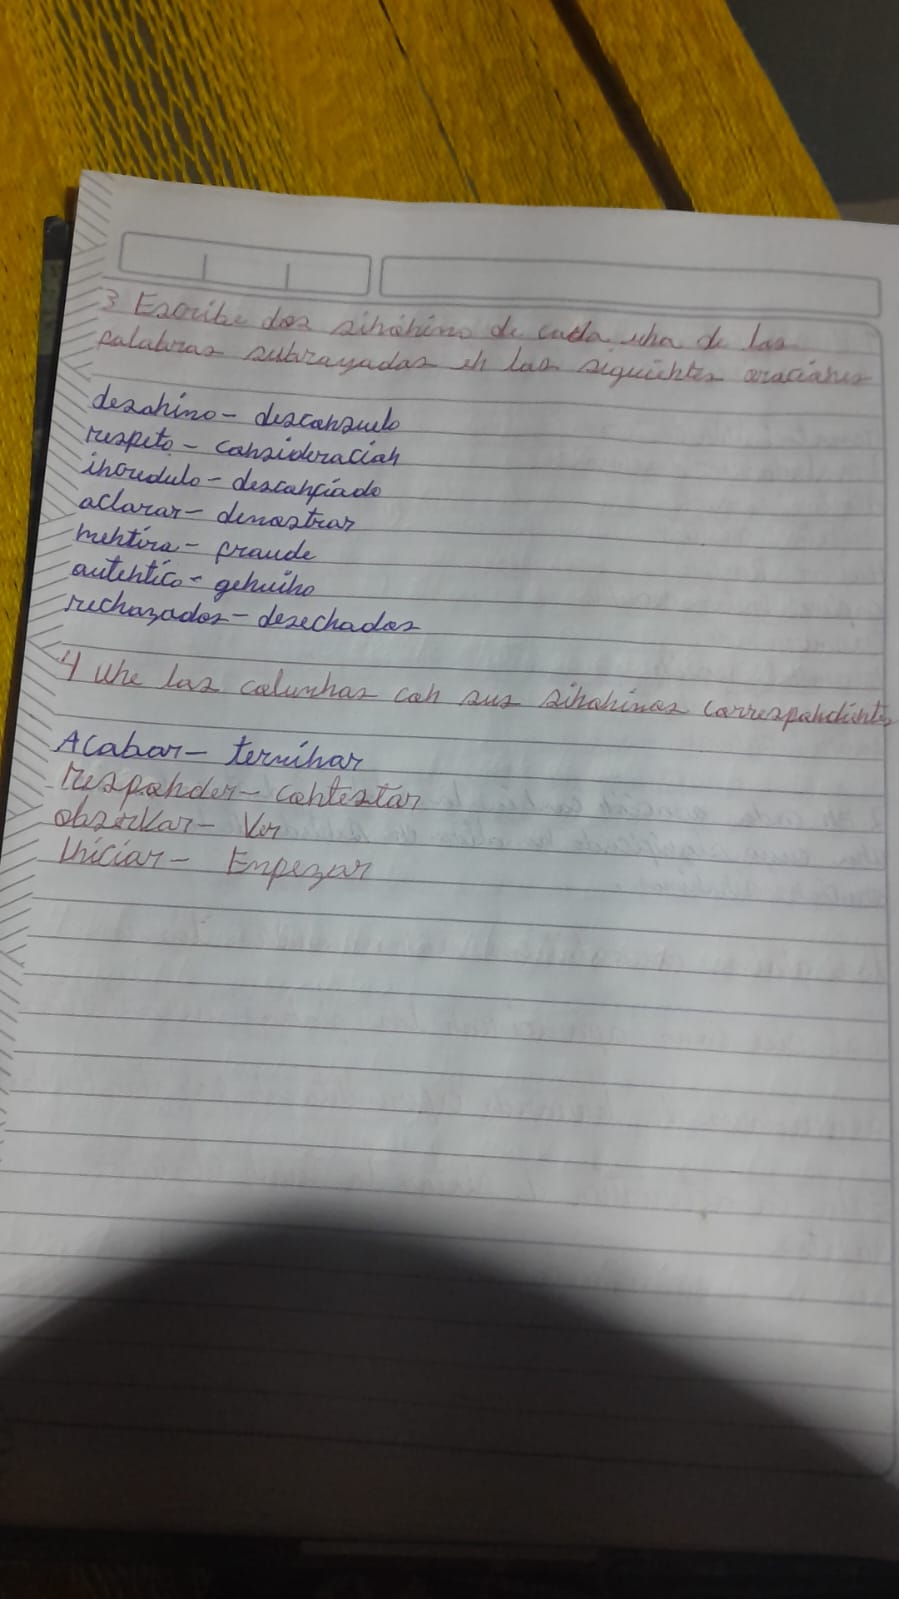 3 Escribe dos sinónimo de cada una de las
palabras subrayadas en las siguientes oraciones
desanino - desconsuelo
respeto - consideración
incredulo - desconfiado
aclarar - demostrar
mentira - fraude
autentico - genuino
rechazados - desechados
4 une las columnas con sus sinonimos correspondientes
Acabar - terminar
responder - contestar
observar - Ver
Iniciar - Empezar